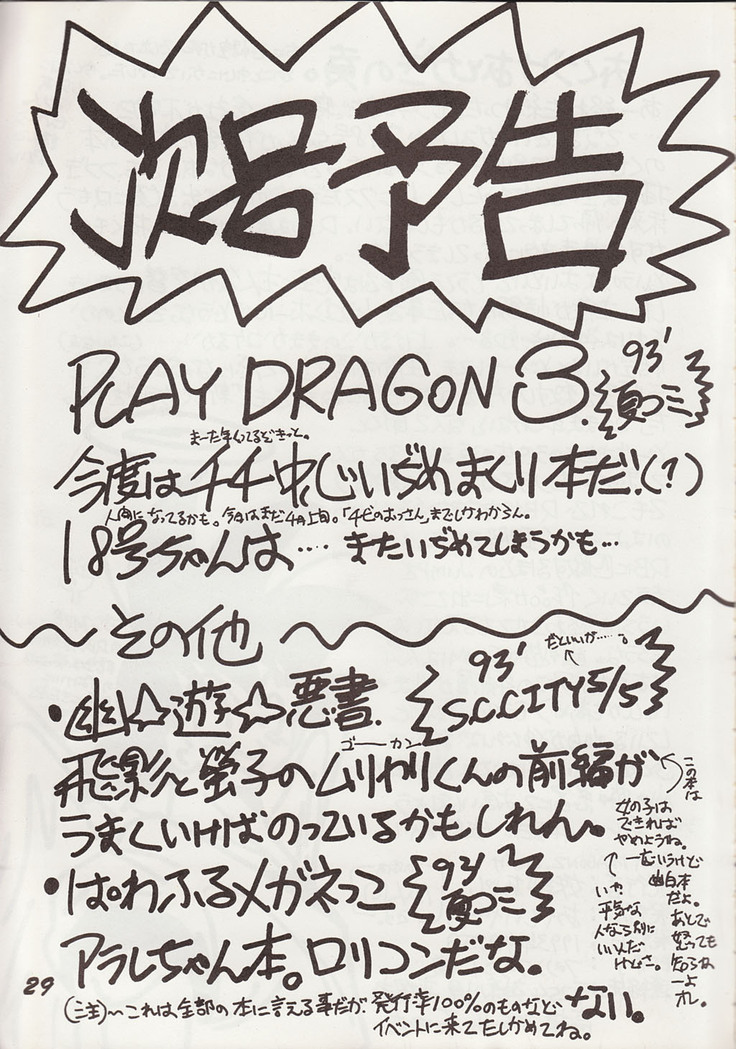 次号予告
PLAY DRAGON 3. 93' 夏コミ
今度はチチ中心いぢめまくり本だ!(?)
人間になってるかも。今はまだ4月上旬。「チビのおっさん」までしかわからん。
18号ちゃんは…. またいぢめてしまうかも…
その他
だといいが……。
・幽☆遊☆悪書. 93' S.C.CITY 5/5
ゴーカン
飛影と螢子のムリヤリくんの前編が
うまくいけばのっているかもしれん。
この本は
女の子は
できれば
やめようね。
一応いうけど
幽白本
だよ。
あとで
怒っても
知らね
ーよ
オレ。
いや
平気な
人なら別に
いいんだ
けどさ。
・ぱわふるメガネっこ 93' 夏コミ
アラレちゃん本。ロリコンだな。
(注)〜これは全部の本に言える事だが、発行率100%のものなど
ない。
イベントに来てたしかめてね。
29